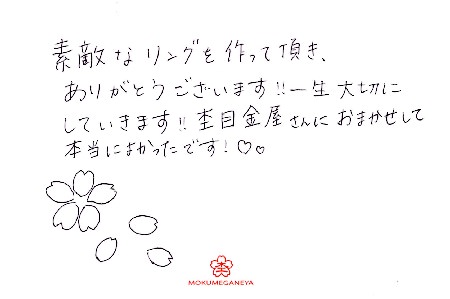 素敵なリングを作って頂き、
ありがとうございます!!一生大切に
していきます!!杢目金屋さんにおまかせして
本当によかったです!♡♡
杢
MOKUMEGANEYA